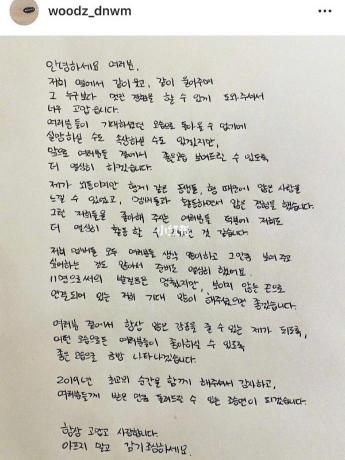 woodz_dnwm
안녕하세요 여러분,
저희 옆에서 같이 웃고, 같이 울어주며
그 누구보다 멋진 경험을 할 수 있게 도와주셔서
너무 고맙습니다.
여러분들이 기대하셨던 모습으로 돌아올 수 없기에
실망하실 수도 속상하실 수도 있겠지만,
앞으로 여러분들 곁에서 좋은모습 보여드릴 수 있도록
더 열심히 하겠습니다.
저는 외동이지만 형제 같은 동생들, 형 때문에 많은 사랑을
느낄 수 있었고, 멤버들과 활동하면서 많은 경험을 했습니다.
그런 저희들을 좋아해 주신 여러분들 덕분에 저희도
더 열심히 활동할 수 있었던 것 같습니다.
저희 멤버들 모두 여러분들 생각 많이하고 그만큼 보여 주고
싶어하는 것도 많아서 준비도 열심히 했어요.
11명으로써의 발걸음은 멈췄지만, 보이지 않는 끈으로
연결되어 있는 저희 기대 많이 해주셨으면 좋겠습니다.
여러분 곁에서 항상 많은 감동을 줄 수 있는 제가 되도록,
어떤 모습으로든 여러분들이 좋아하실 수 있도록
좋은 모습으로 금방 나타나겠습니다.
2019년 최고의 순간을 함께 해주셔서 감사하고,
여러분들께 받은 만큼 돌려드릴 수 있는 조승연이 되겠습니다.
항상 고맙고 사랑합니다.
아프지 말고 감기조심하세요.
小红书